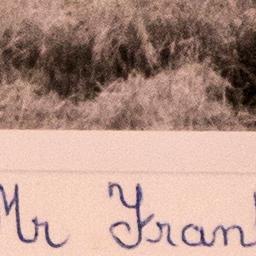 Mr Frank